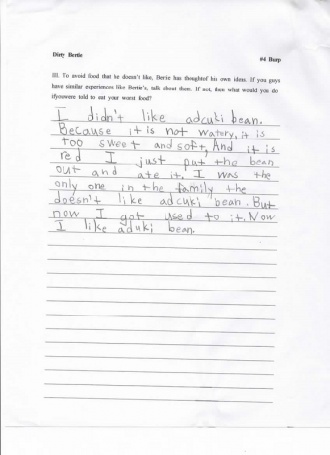 Dirty Bertie
#4 Burp
III. To avoid food that he doesn't like, Bertie has thoughtof his own ideas. If you guys
have similar experiences like Bertie's, talk about them. If not, then what would you do
ifyouwere told to eat your worst food?
I didn't like adcuki bean.
Because it is not watory, it is
too sweet and soft, And it is
red I just put the bean
out and ate it. I was the
only one in the family the
doesn't like adcuki bean. But
now I got used to it. Now
I like aduki bean.